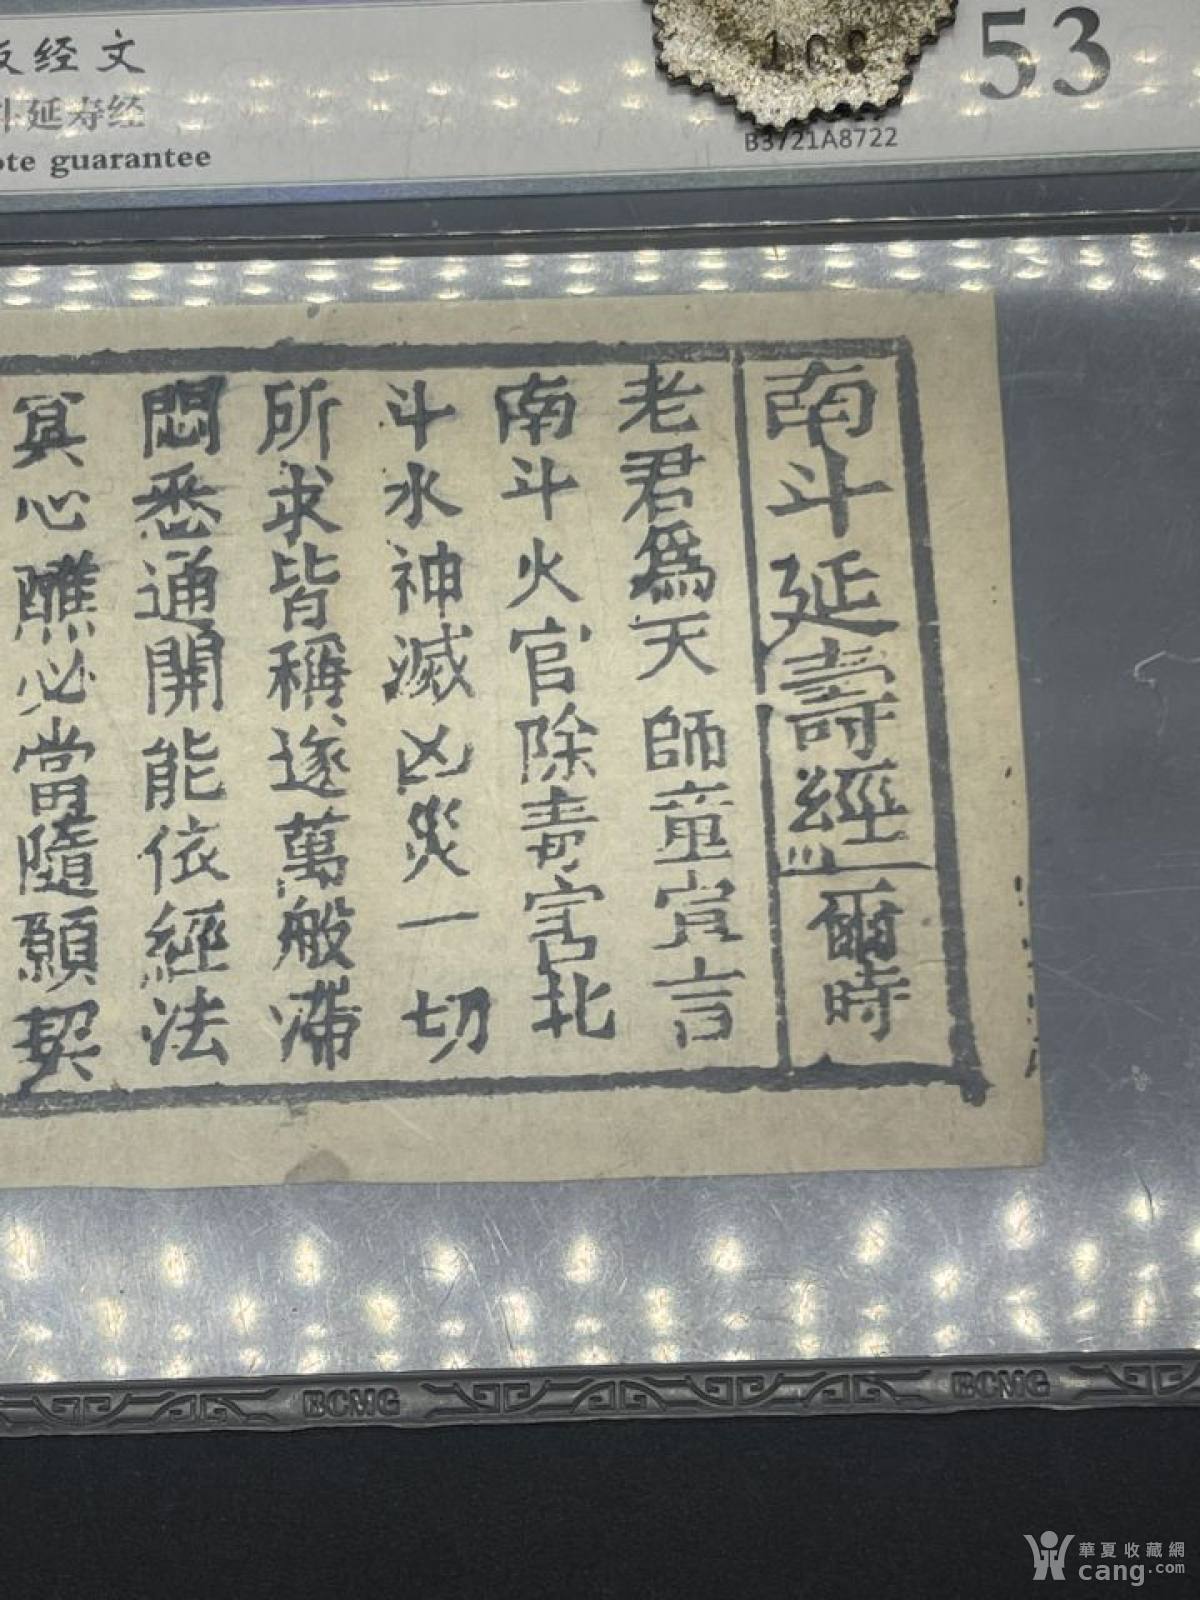 版经文
斗延寿经
ote guarantee
53
B3721A8722
南斗延壽經 爾時
老君爲天師童宣言
南斗火官除毒害北
斗水神滅凶災一切
所求皆稱遂萬般滯
悶悉通開能依經法
冥心醮必當隨願契
BCMG
BCMG
華夏收藏網
cang.com